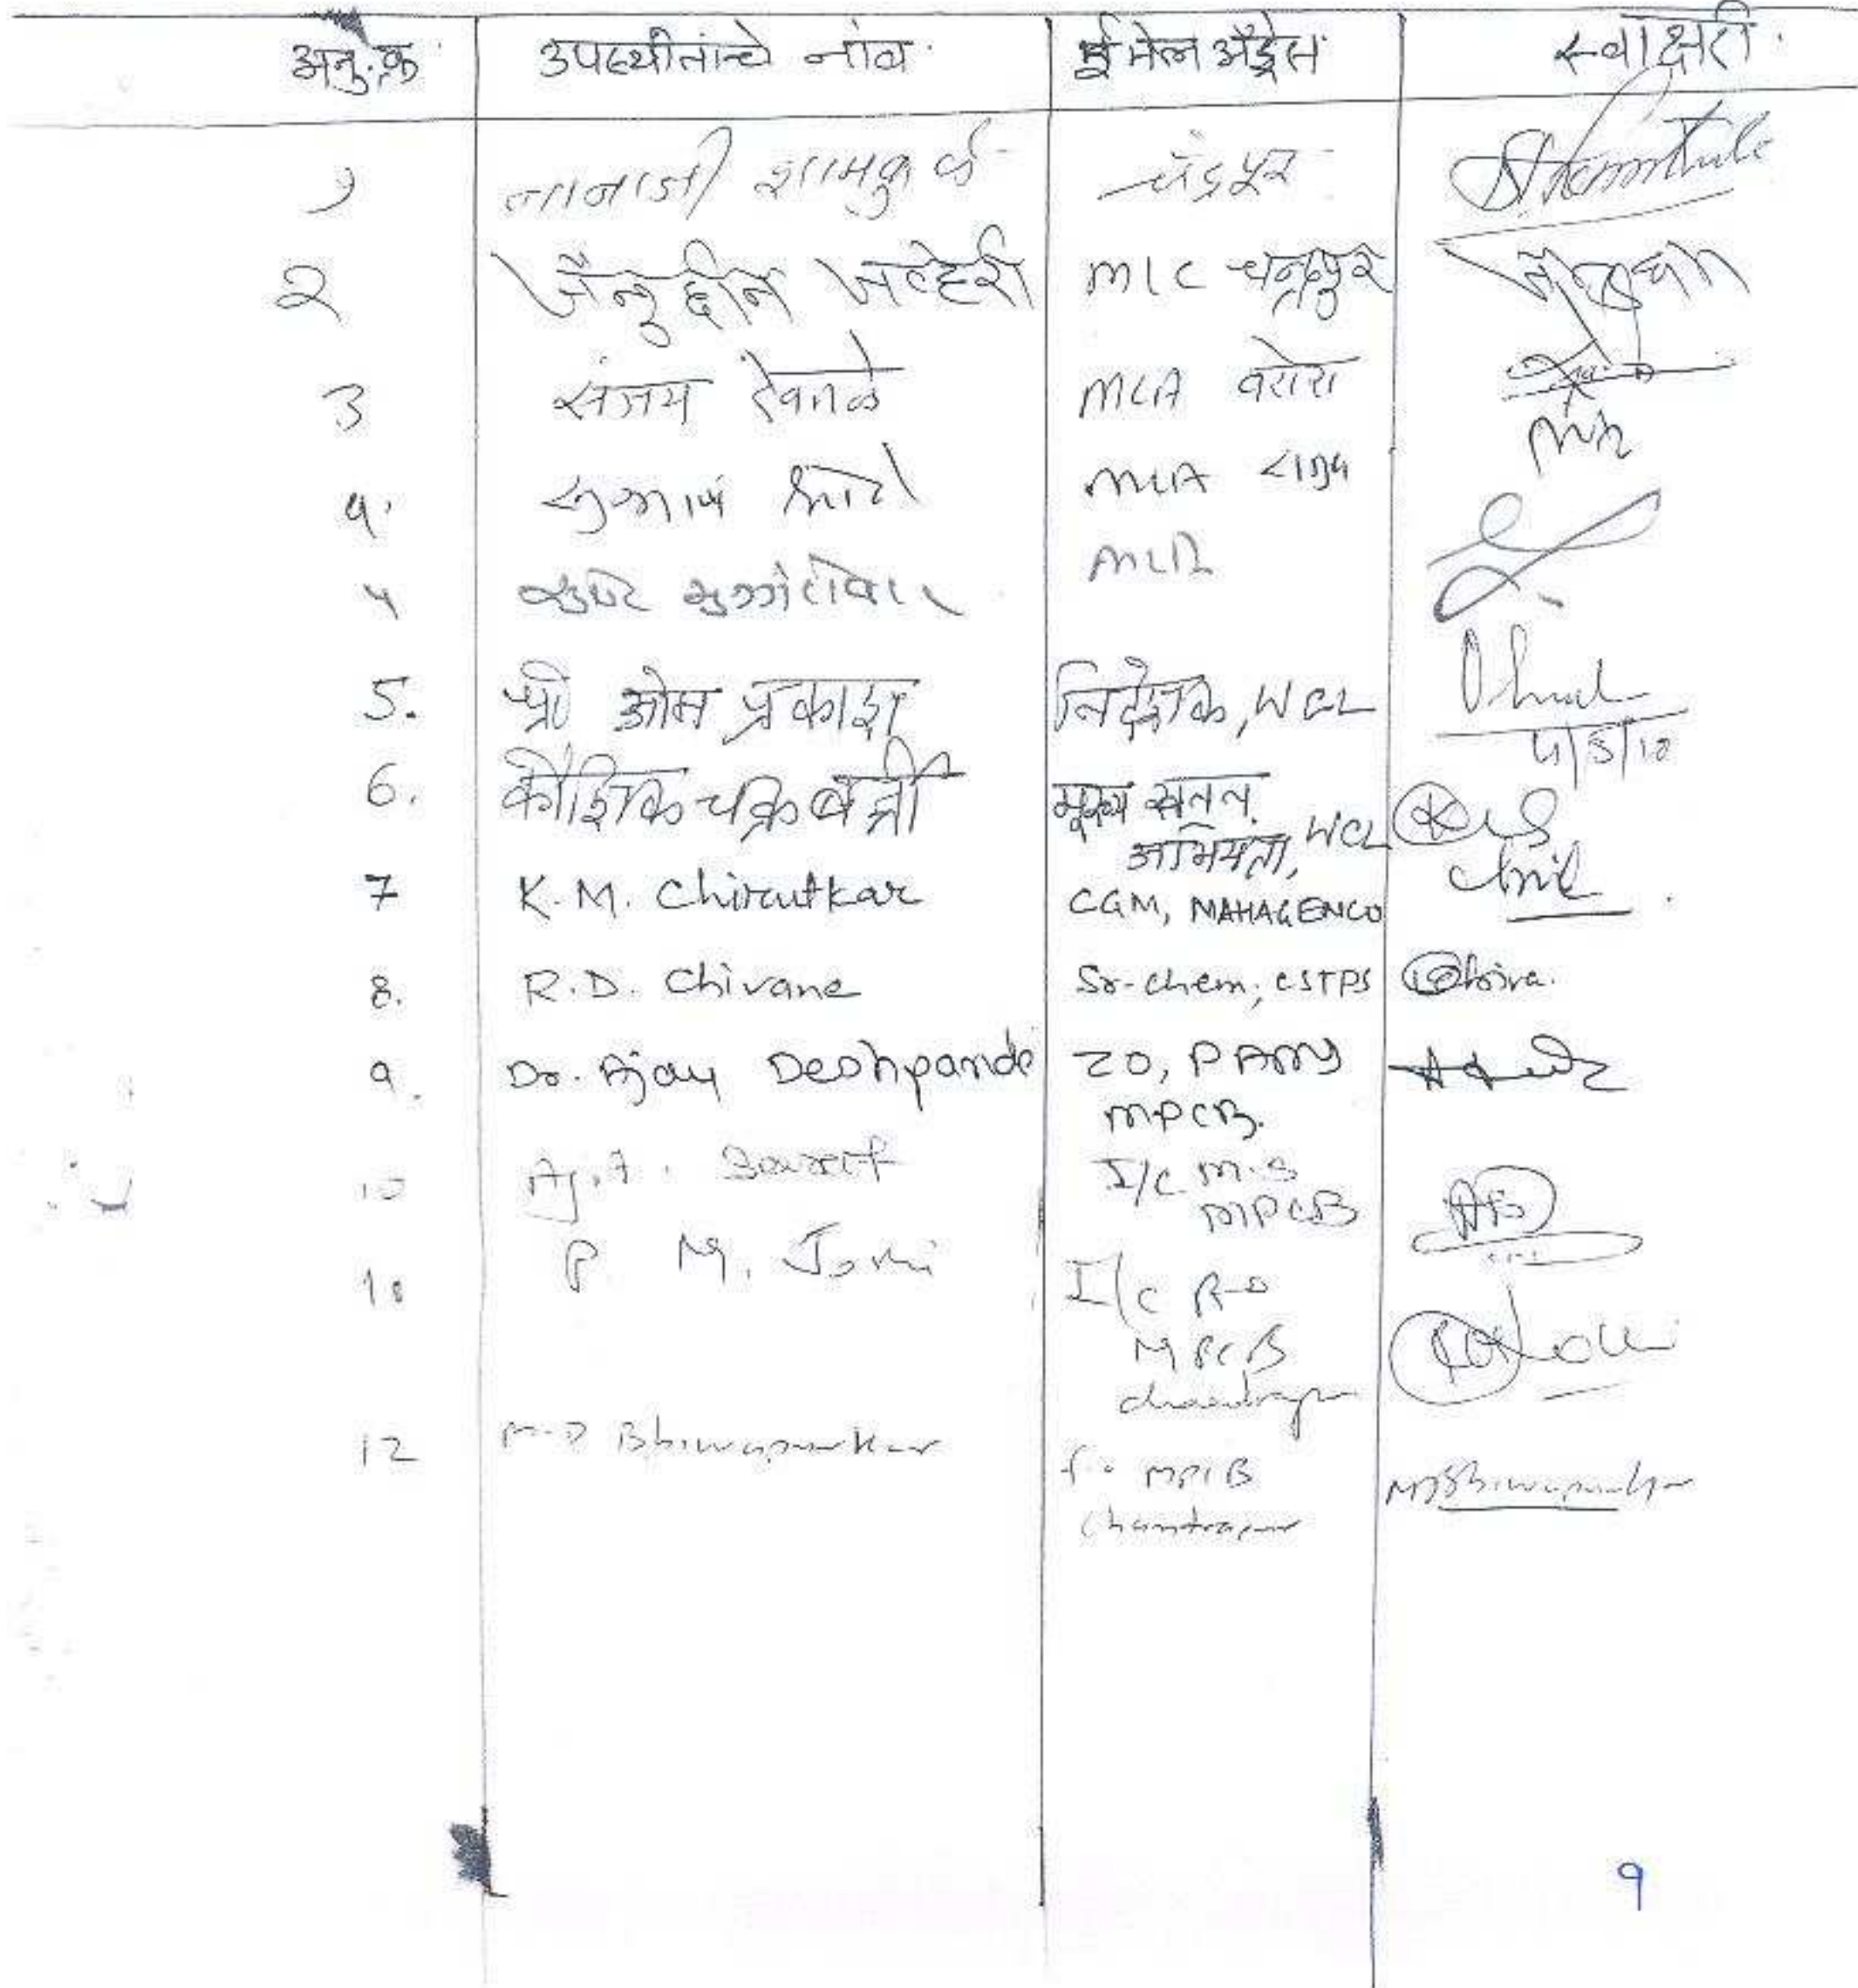 अनु.क्र. उपस्थीतांचे नांव. ई मेल अँड्रेस स्वाक्षरी.
१ नानाजी शामकुळे चंद्रपूर
२ जैनुद्दीन जव्हेरी MLC चन्द्रपुर
3 संजय देवतळे MLA वरोरा
४. सुभाष धोटे MLA
५ सुधीर मुनगंटीवार MLA
5. श्री ओम प्रकाश निदेशक, WCL
6. कौशिक चक्रबर्ती मुख्य खनन
अभियंता, WCL
7 K.M. Chirutkar CGM, MAHAGENCO
8. R.D. Chivane Sr-chem; CSTPS
9. Dr. Ajay Deshpande ZO, PAMS
MPCB.
10 I/C M.S
MPCB
P M. Joshi I/C R-O
MPCB
chandrapur
12 M-D Bhiwapurkar MPCB
Chandrapur MDBhiwapurkar
9